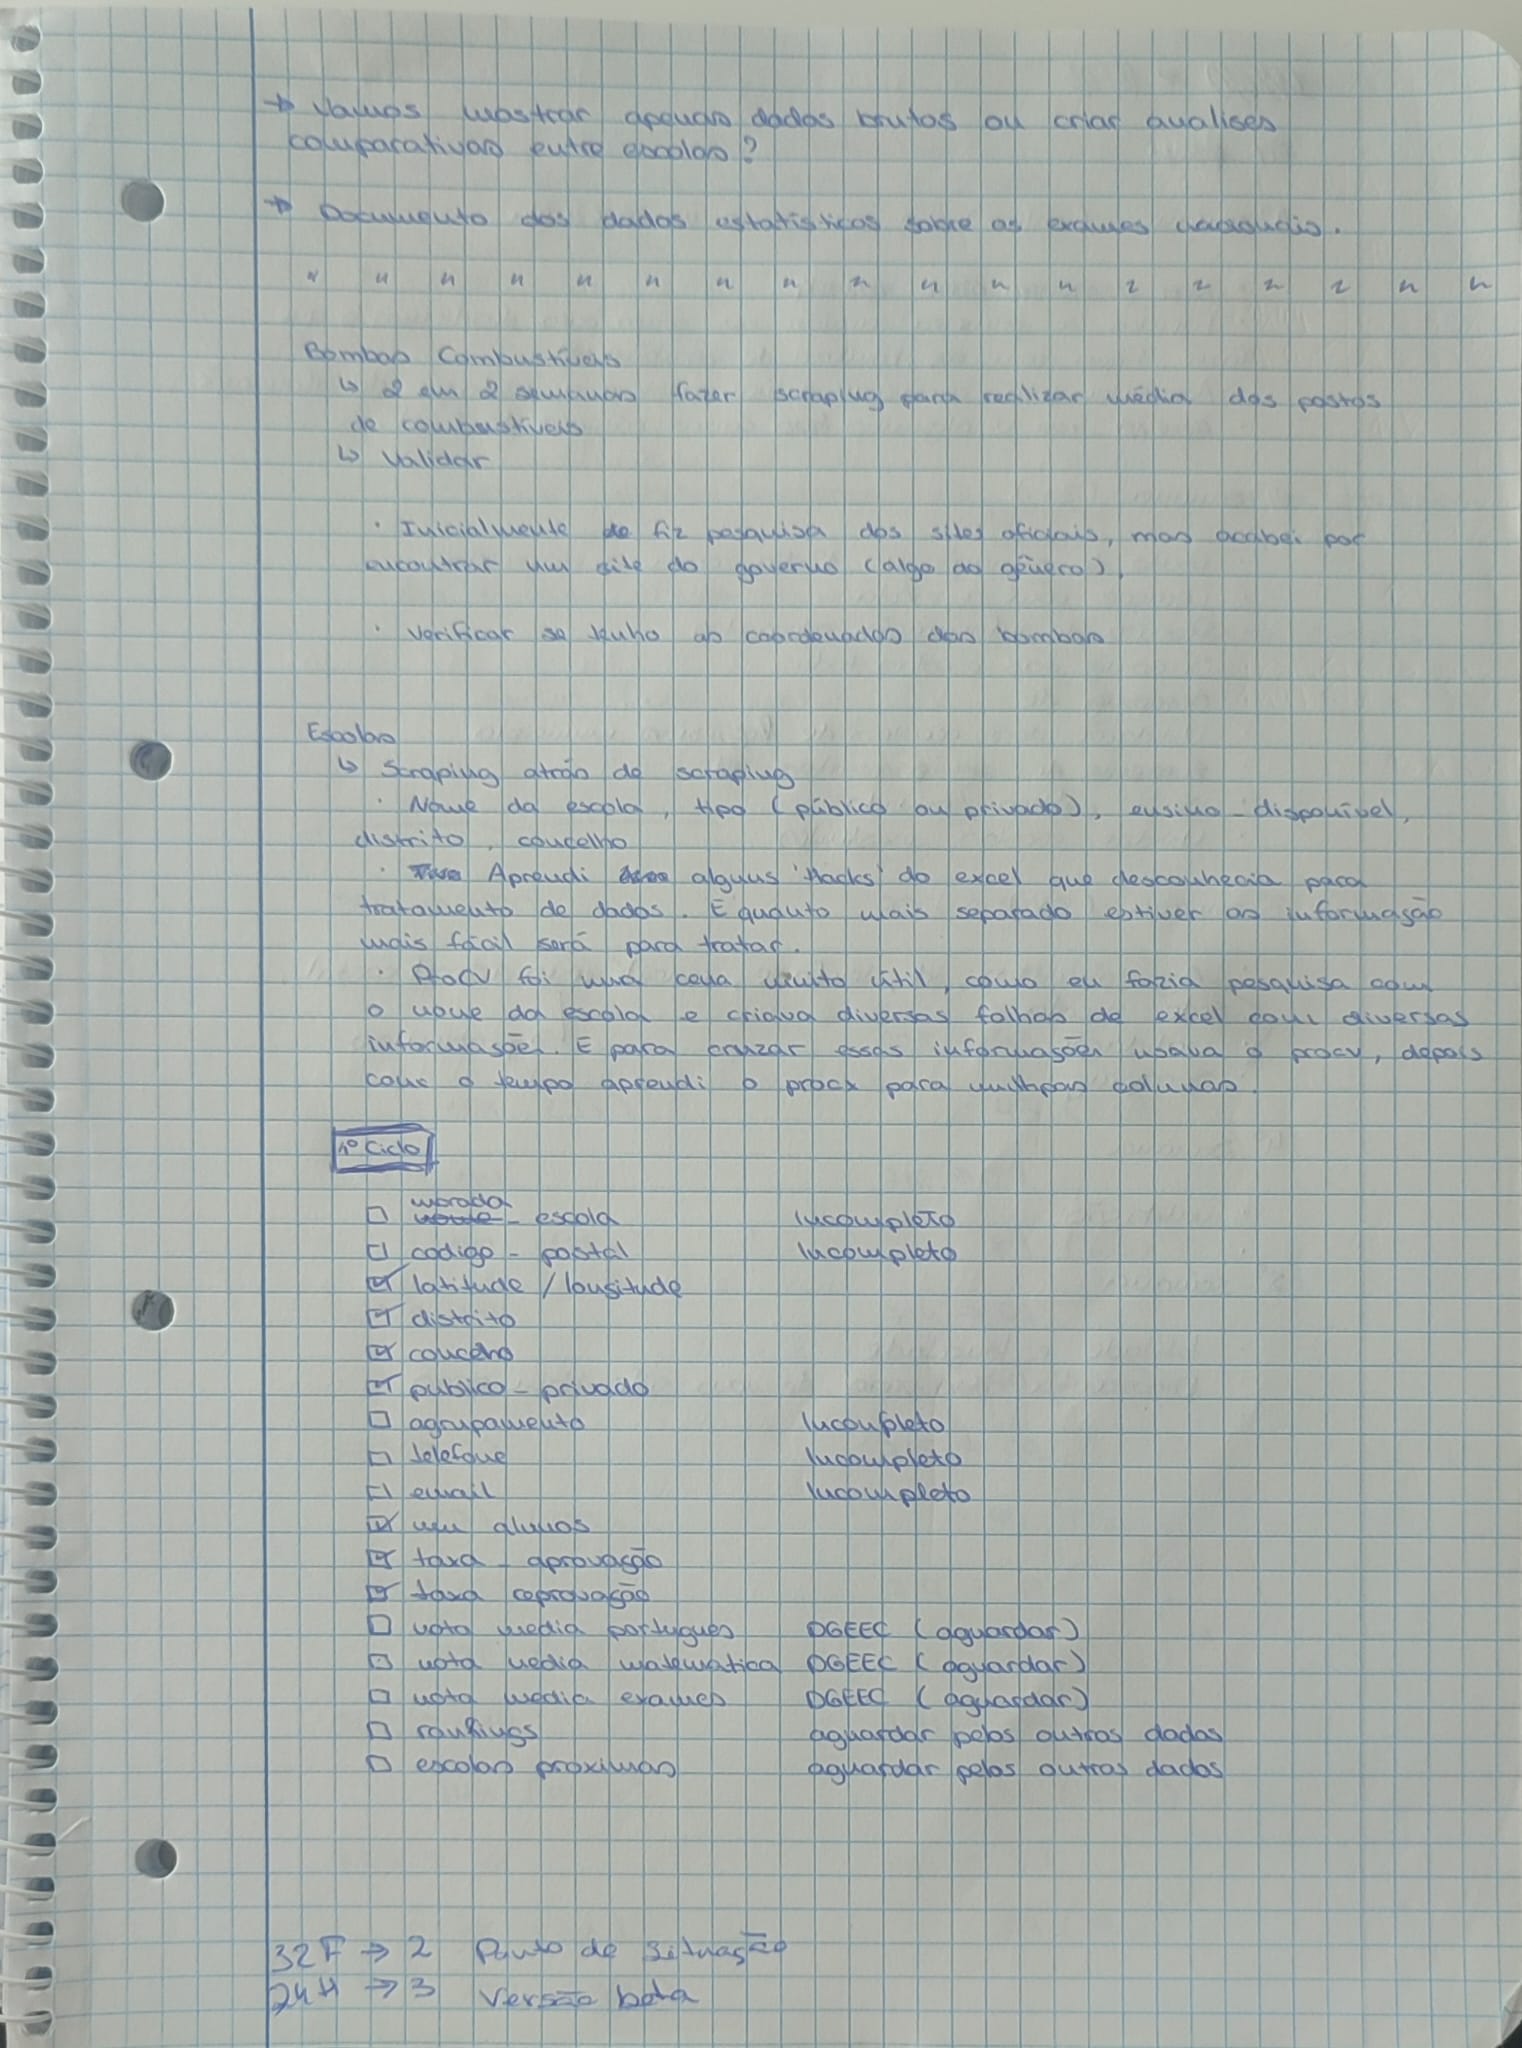 → Vamos mostrar apenas dados brutos ou criar analises
comparativas entre escolas?
→ Documento dos dados estatísticos sobre os exames nacionais.
Bombas Combustíveis
↳ 2 em 2 semanas fazer scraping para realizar média dos postos
de combustíveis
↳ Validar
· Inicialmente fiz pesquisa dos sites oficiais, mas acabei por
encontrar um site do governo (algo do género).
· Verificar se tenho as coordenadas das bombas
Escolas
↳ Scraping atrás de scraping
· Nome da escola, tipo (público ou privado), ensino_disponível,
distrito, concelho
· Aprendi alguns 'Hacks' do excel que desconhecia para
tratamento de dados. E quanto mais separado estiver as informação
mais fácil será para tratar.
· Procv foi uma cena muito útil, como eu fazia pesquisa com
o nome da escola e criava diversas folhas de excel com diversas
informasões. E para cruzar essas informasões usava o procv, depois
com o tempo aprendi o procx para multipas colunas.
1º Ciclo
☐ morada_escola Incompleto
☐ codigo_postal Incompleto
☑ latitude / longitude
☑ distrito
☑ concelho
☑ publico_privado
☐ agrupamento Incompleto
☐ telefone Incompleto
☐ email Incompleto
☑ num alunos
☑ taxa_aprovação
☑ taxa reprovação
☐ nota media portugues DGEEC (aguardar)
☐ nota media matematica DGEEC (aguardar)
☐ nota media exames DGEEC (aguardar)
☐ rankings aguardar pelos outros dados
☐ escolas proximas aguardar pelos outros dados
32F → 2 Ponto de Situação
24H → 3 Versão beta